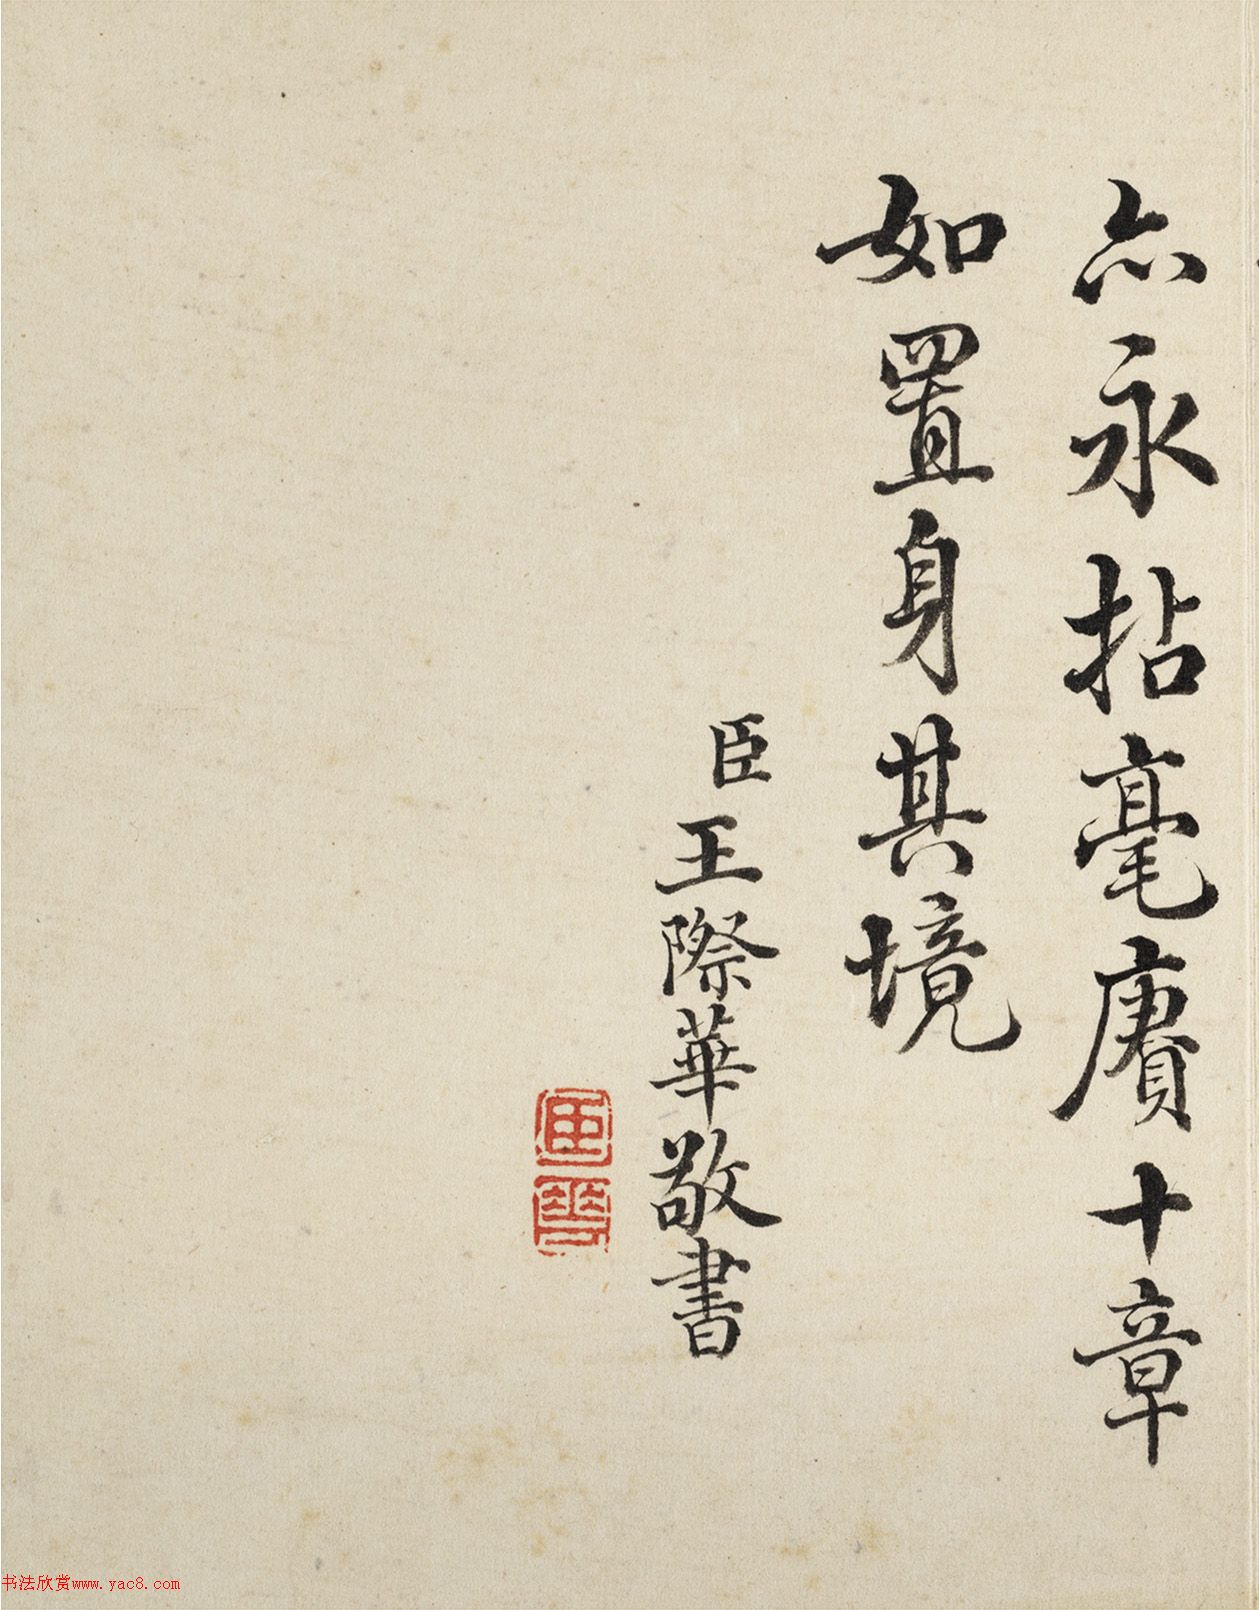 亦永拈毫賡十章
如置身其境
臣王際華敬書
臣
華
书法欣赏www.yac8.com